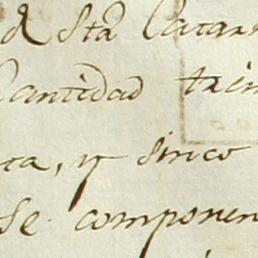 d Sta Catar
Cantidad trein
ta, y sinco
se componen